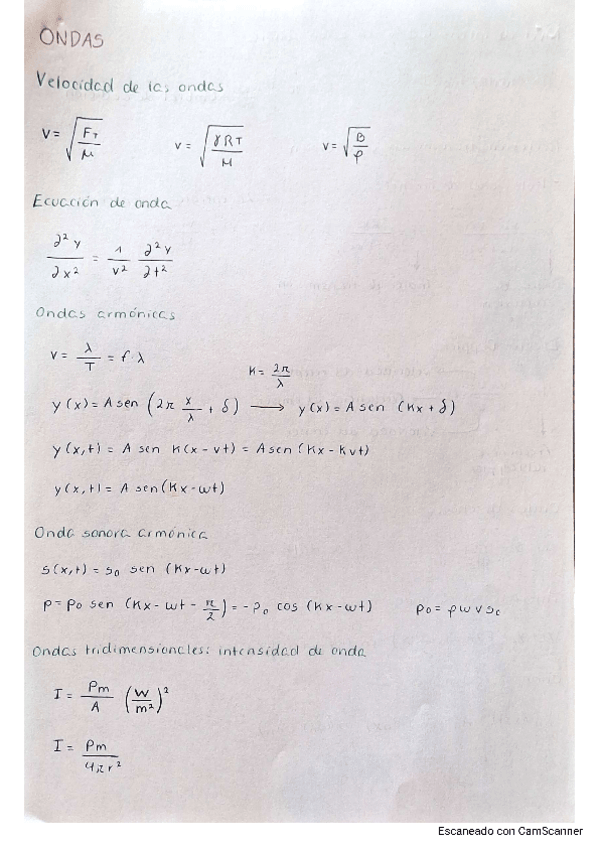 ONDAS
Velocidad de las ondas
v = √(F_T / μ)    v = √(γRT / M)    v = √(B / ρ)
Ecuación de onda
∂²y / ∂x² = 1 / v² ∂²y / ∂t²
Ondas armónicas
v = λ / T = f·λ
K = 2π / λ
y(x) = A sen (2π x / λ + δ) ⟶ y(x) = A sen (Kx + δ)
y(x,t) = A sen K(x - vt) = A sen (Kx - Kvt)
y(x,t) = A sen(Kx - ωt)
Onda sonora armónica
s(x,t) = s₀ sen (Kx - ωt)
p = p₀ sen (Kx - ωt - π / 2) = - p₀ cos (Kx - ωt)    p₀ = ρωvs₀
Ondas tridimensionales: intensidad de onda
I = Pm / A (W / m²)²
I = Pm / 4πr²
Escaneado con CamScanner